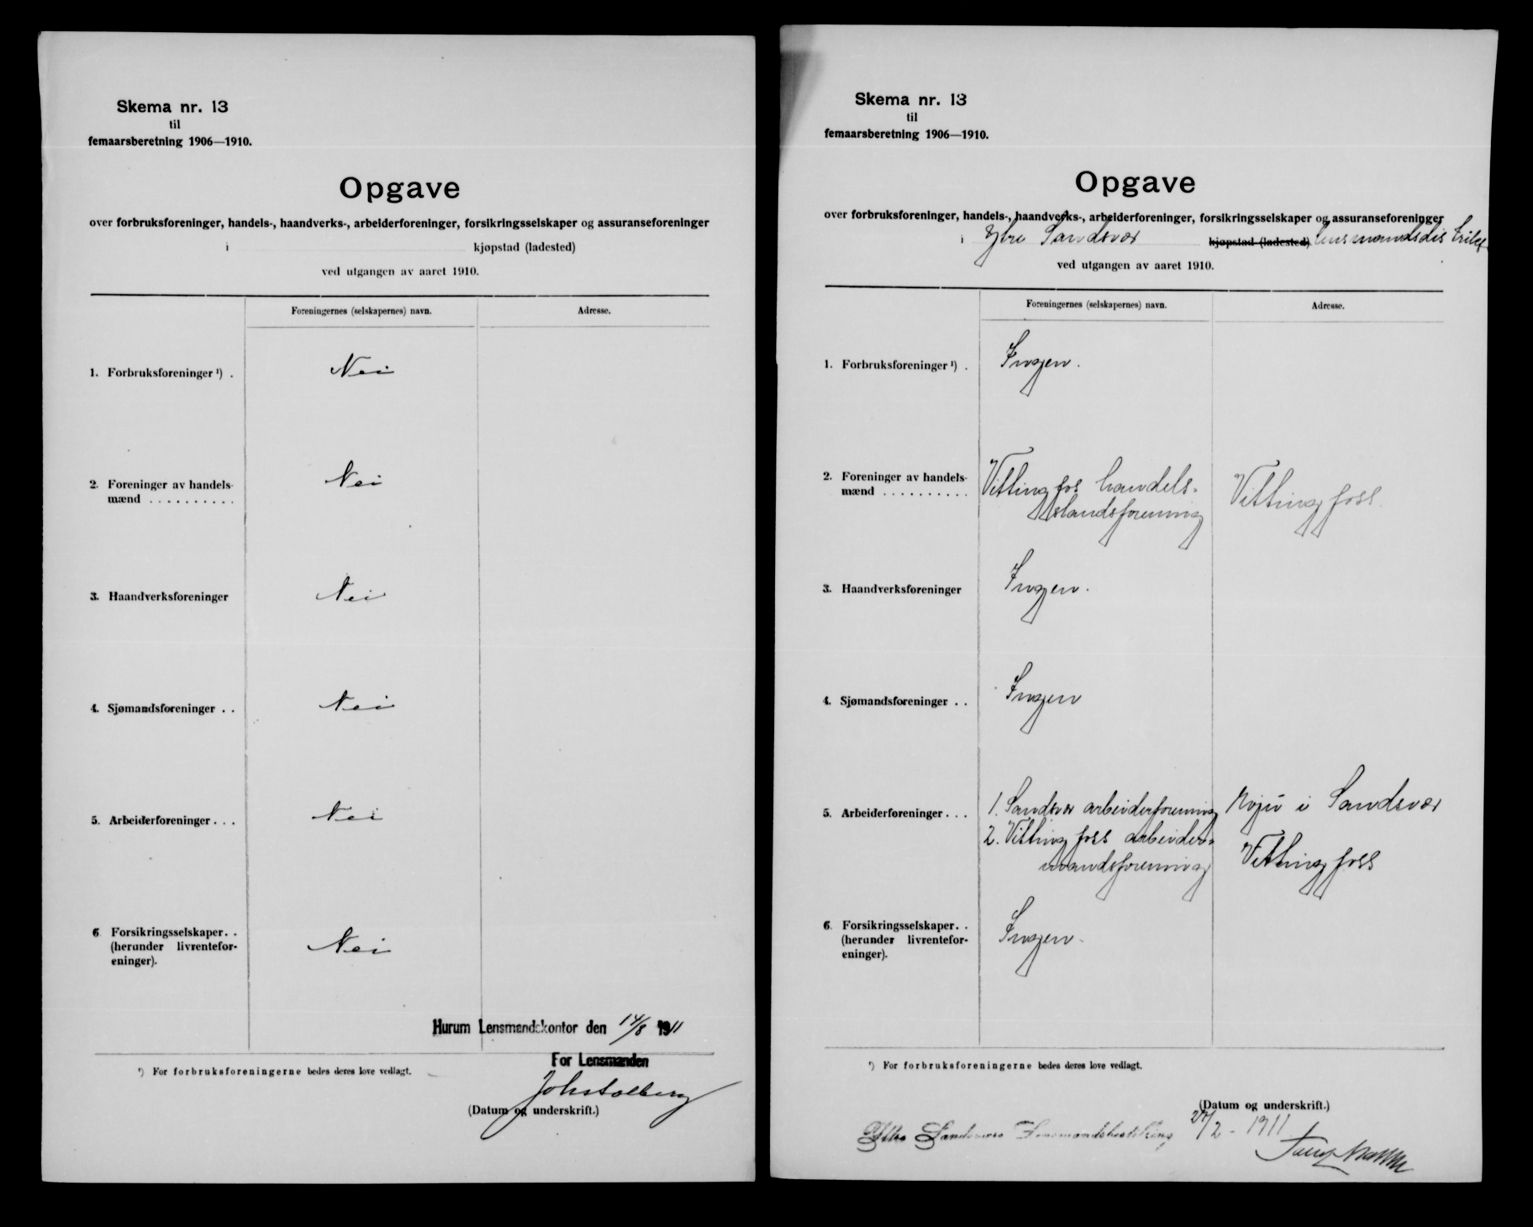 Skema nr. 13
til
femaarsberetning 1906—1910.
Opgave
over forbruksforeninger, handels-, haandverks-, arbeiderforeninger, forsikringsselskaper og assuranseforeninger
i kjøpstad (ladested)
ved utgangen av aaret 1910.
Foreningernes (selskapernes) navn. Adresse.
1. Forbruksforeninger ¹) . Nei
2. Foreninger av handels-
mænd . . . . . . . . . . Nei
3. Haandverksforeninger Nei
4. Sjømandsforeninger . . Nei
5. Arbeiderforeninger . . . Nei
6. Forsikringsselskaper. .
(herunder livrentefor-
eninger). Nei
Hurum Lensmandskontor den 14/8 1911
For Lensmanden
Joh Stolberg
¹) For forbruksforeningerne bedes deres love vedlagt.
(Datum og underskrift.)
Skema nr. 13
til
femaarsberetning 1906—1910.
Opgave
over forbruksforeninger, handels-, haandverks-, arbeiderforeninger, forsikringsselskaper og assuranseforeninger
i Ytre Sandsvær kjøpstad (ladested) lensmandsdistrikt
ved utgangen av aaret 1910.
Foreningernes (selskapernes) navn. Adresse.
1. Forbruksforeninger ¹) . Ingen.
2. Foreninger av handels-
mænd . . . . . . . . . . Vittingfos handels- Vittingfoss.
standsforening
3. Haandverksforeninger Ingen.
4. Sjømandsforeninger . . Ingen
5. Arbeiderforeninger . . . 1. Sandsvær arbeiderforening i Sandsvær
2. Vittingfoss arbeider- Vittingfoss
mandsforening
6. Forsikringsselskaper. .
(herunder livrentefor-
eninger). Ingen.
¹) For forbruksforeningerne bedes deres love vedlagt.
(Datum og underskrift.)
Ytre Sandsværs Lensmandsbestilling 27/2 - 1911